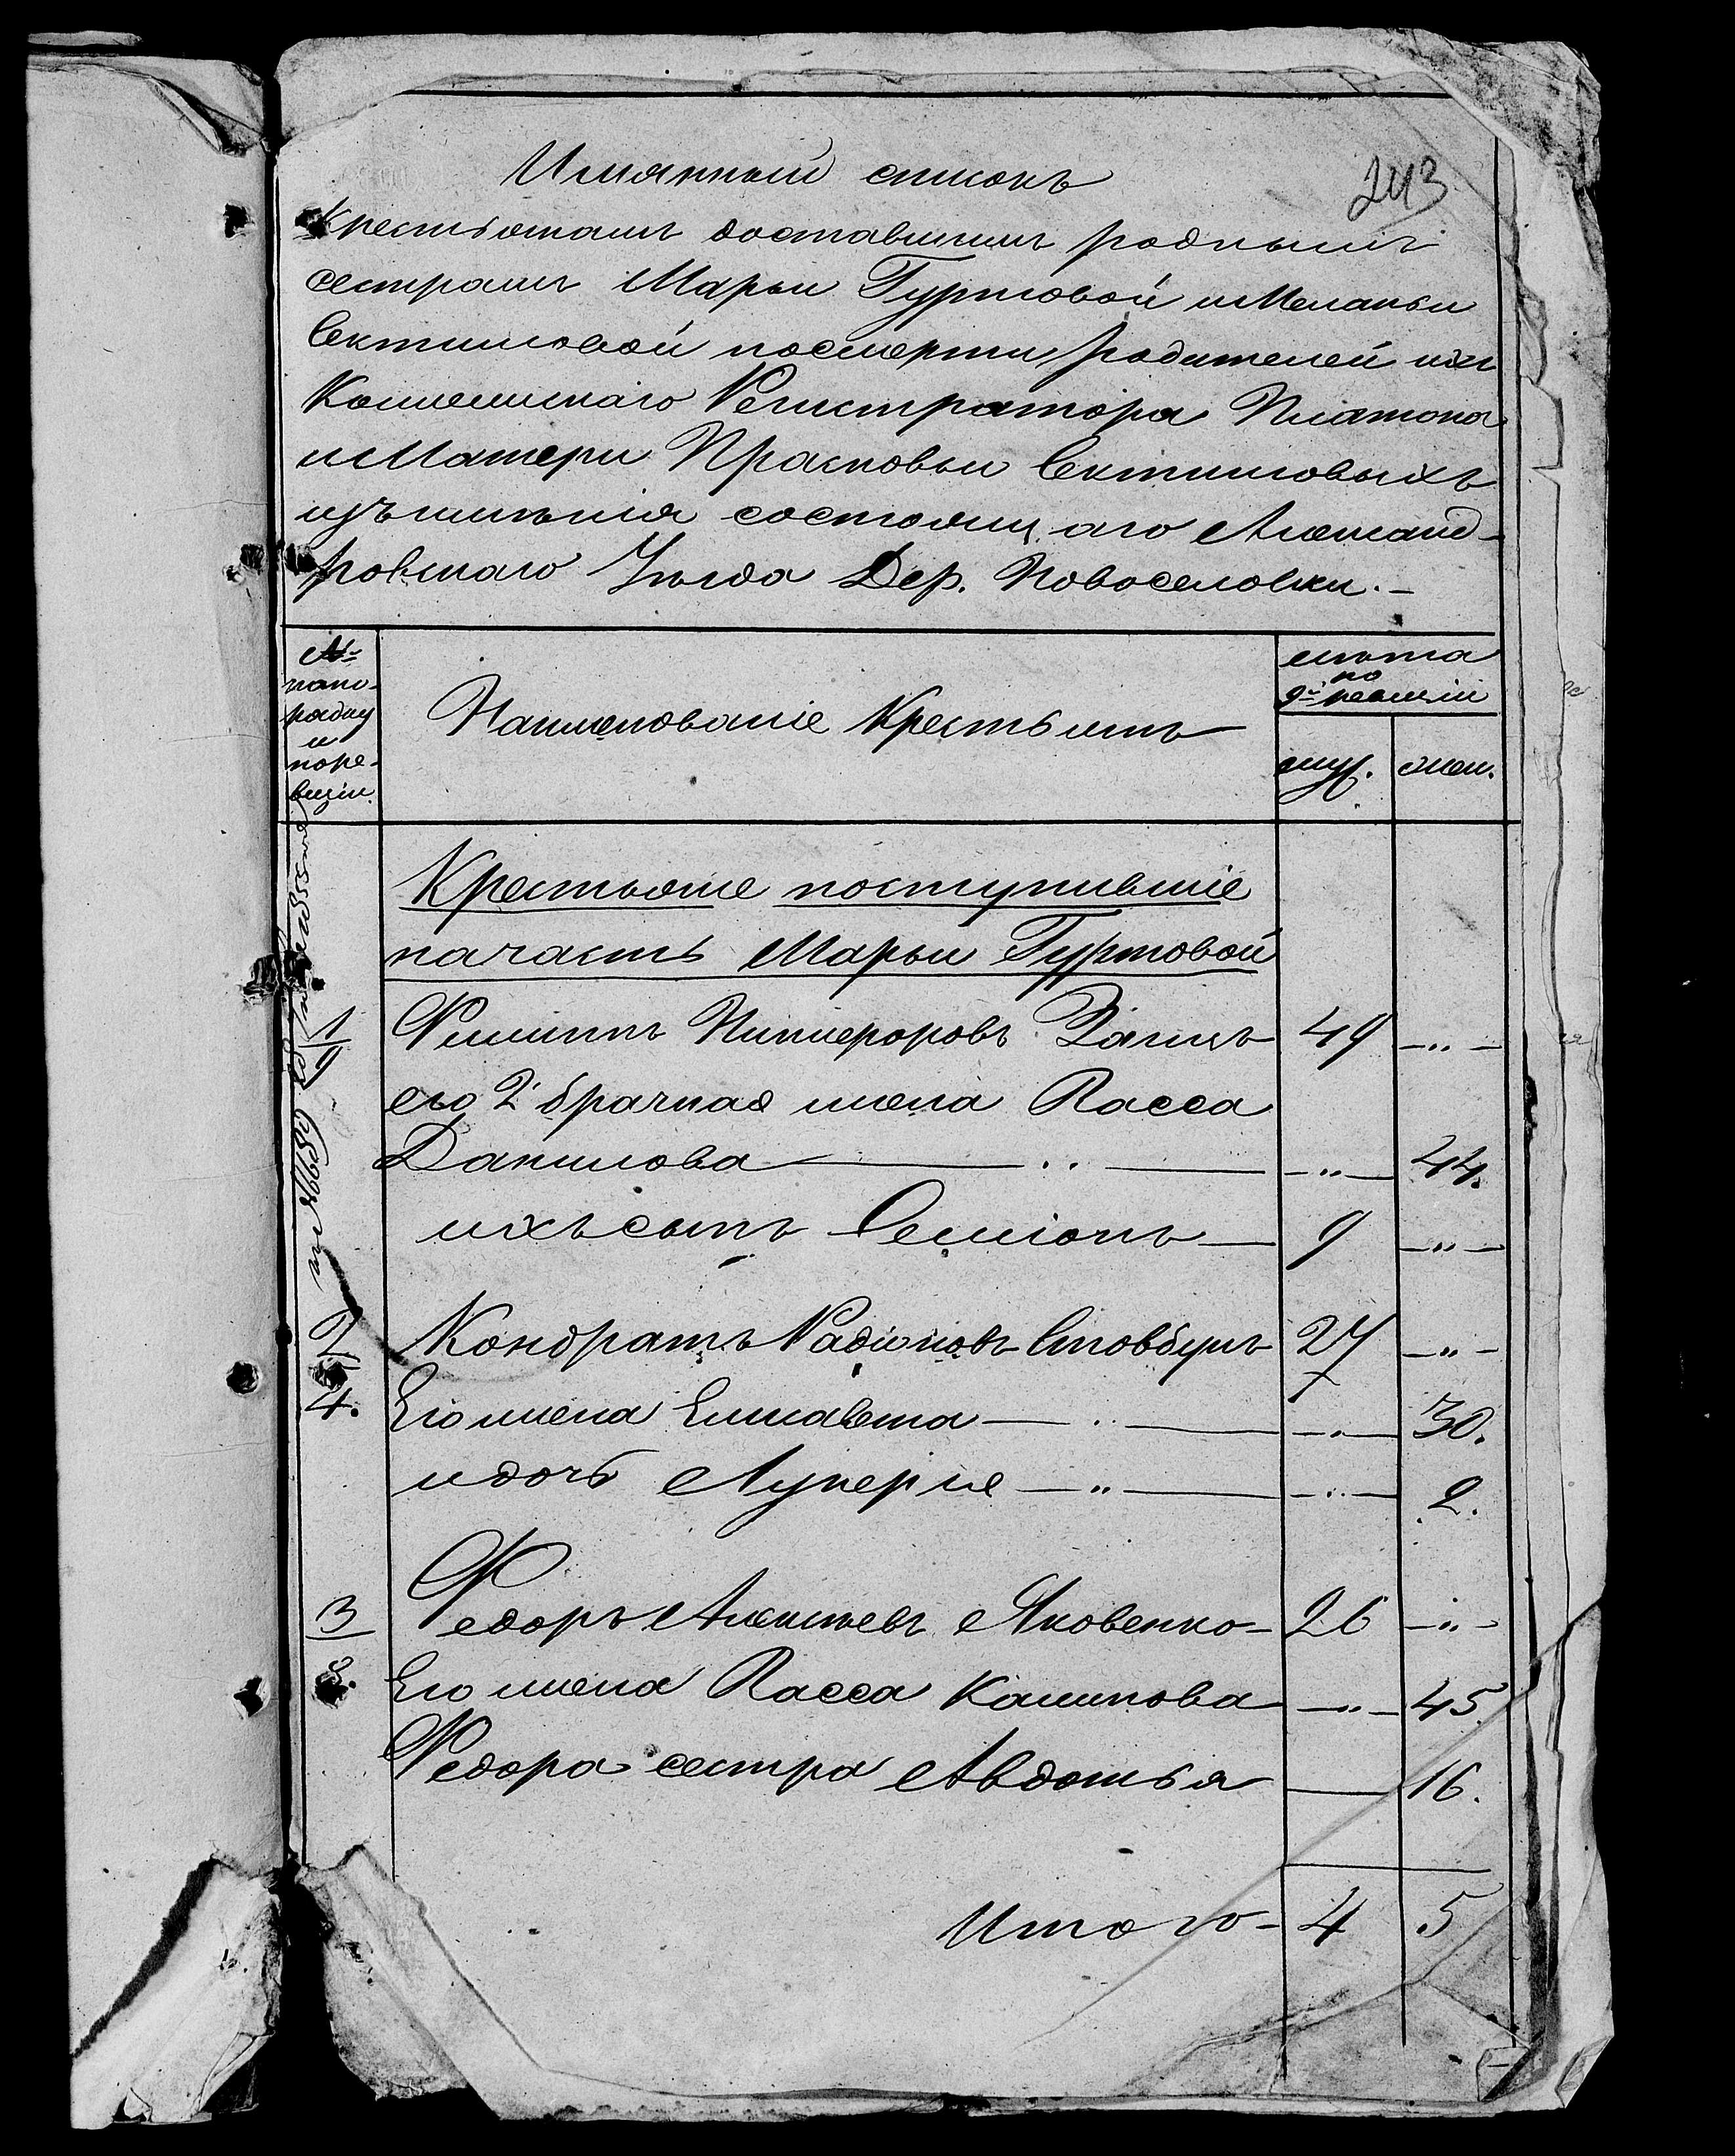 Имянный списокъ
243
Крестьянамъ доставшимъ роднымъ
сестрамъ Марьи Гуртовой и Меланьи
Сектиловой посмерти родителей ихъ
Коллежскаго Регистратора Платона
и Матери Прасковьи Сектиловыхъ
изъ имѣнія состоящаго Александ-
ровскаго Уѣзда Дер. Новоселовки. –
№
напо-
рядку
и
поре-
визіи.
Наименованіе Крестьянъ
лѣта
по
9й ревизіи
муж. жен.
Крестьяне поступившіе
на часть Марьи Гуртовой
1/9 Филиппъ Никифоровъ Заяцъ 49 – „ –
его 2 брачная жена Васса
Данилова – „ – 44.
ихъ сынъ Семіонъ 9 – „ –
2/4. Кондратъ Радіоновъ Стовбунъ 27 – „ –
Его жена Елисавета – „ – 30.
и дочь Лукерия – „ – 2.
3/8. Федоръ Алексѣевъ Яковенко 26 – „ –
Его жена Васса Калинова – „ – 45
Федора сестра Авдотья — 16.
Итого – 4 5